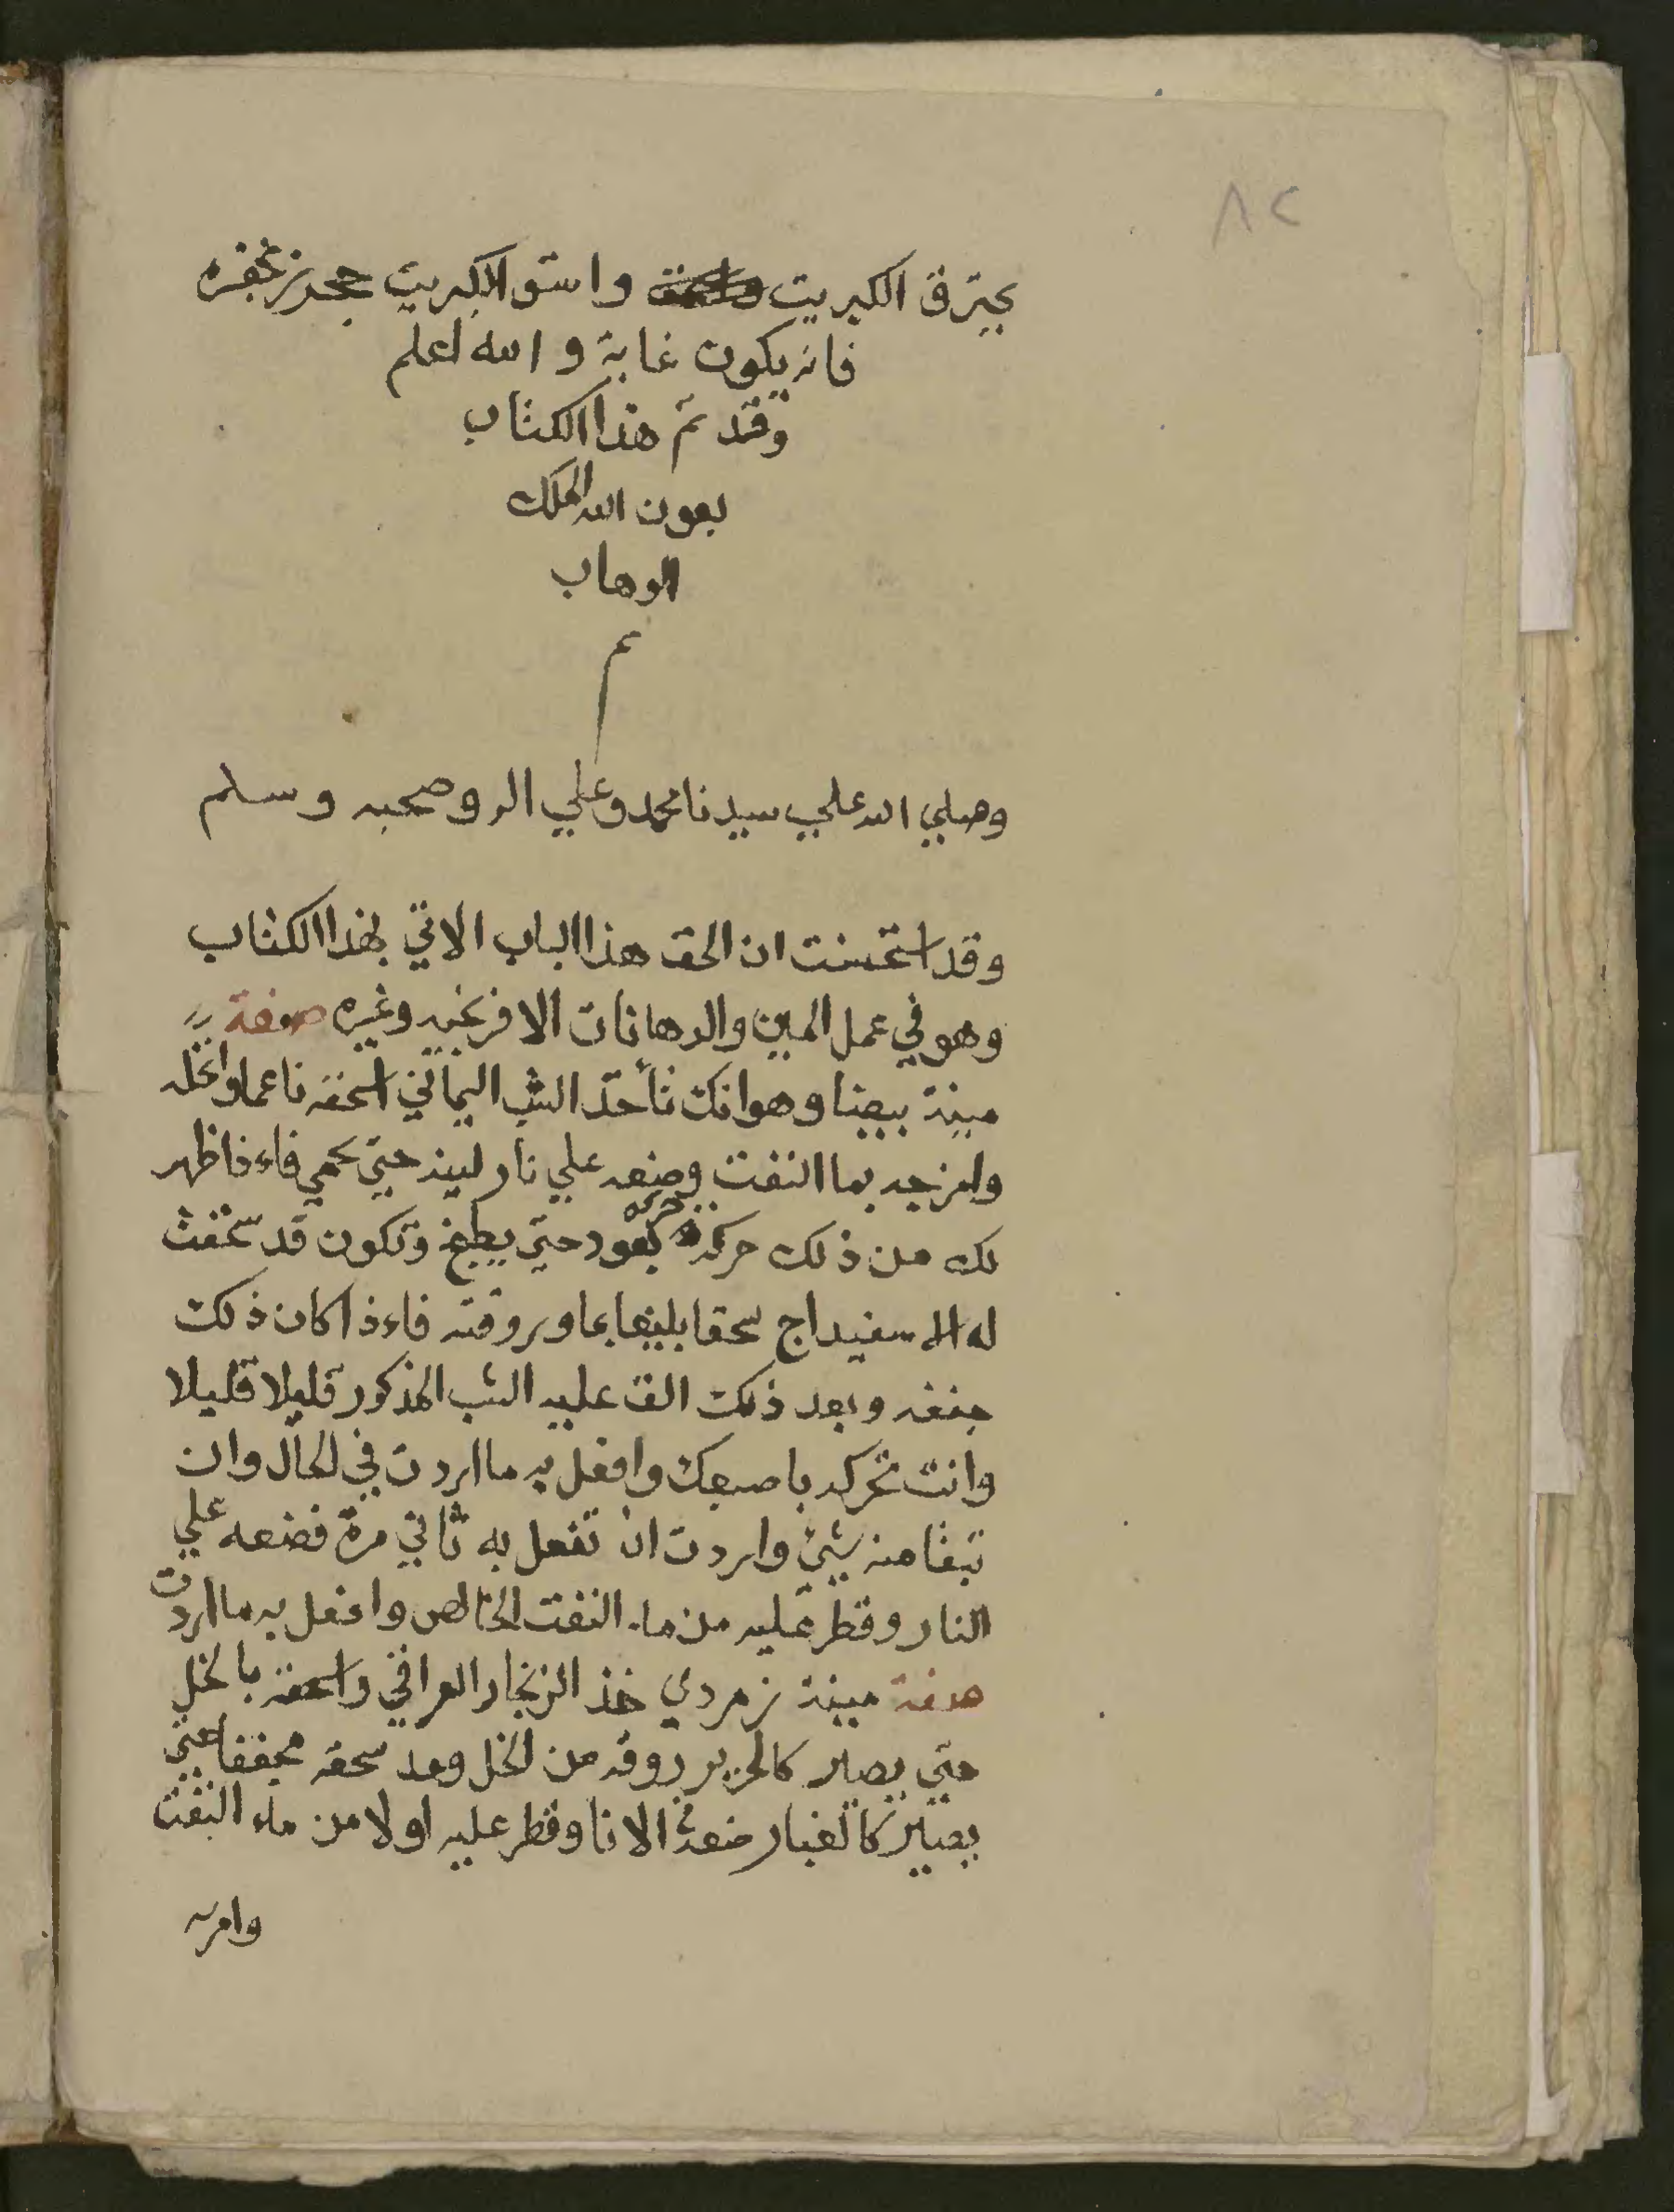 ٨٢
يحترق الكبريت واستو الكبريت حجر زنجفره
فانه يكون غاية و الله اعلم
وقد تم هذا الكتاب
بعون الله الملك
الوهاب
م
وصلي الله علي سيدنا محمد وعلي اله وصحبه وسلم
وقد استحسنت ان الحق هذا الباب الاتي بهذا الكتاب
وهو في عمل المين والدهانات الافرنجيه وغيره صفة
مينة بيضا وهو انك تأخذ الشب اليماني اسحقه ناعما وانخله
وامزجه بما النفت وضعه علي نار لينه حتي يحمي فاء ذا ظهر
لك من ذلك حركة حركه بعود حتي يطبخ وتكون قد سحقت
له الاسفيداج سحقا بليغا بما وروقته فاءذا كان ذلك
جففه وبعد ذلك الق عليه الشب المذكور قليلا قليلا
وانت تحركه باصبعك وافعل به ما اردت في الحال وان
تبقا منه شئ واردت ان تفعل به ثاني مرة فضعه علي
النار وقطر عليه من ماء النفت الخالص وافعل به ما اردت
صفة مينة زمردي خذ الزنجار العراقي واسحقه بالخل
حتي يصير كالحرير روقه من الخل وعد سحقه مجففا حتي
يصير كالغبار ضعه في الانا وقطر عليه اولا من ماء النفت
وامزجه